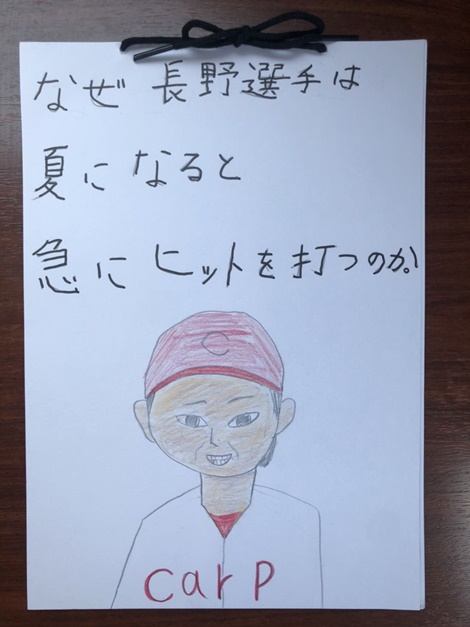 なぜ 長野選手は
夏になると
急にヒットを打つのか。
C
carp